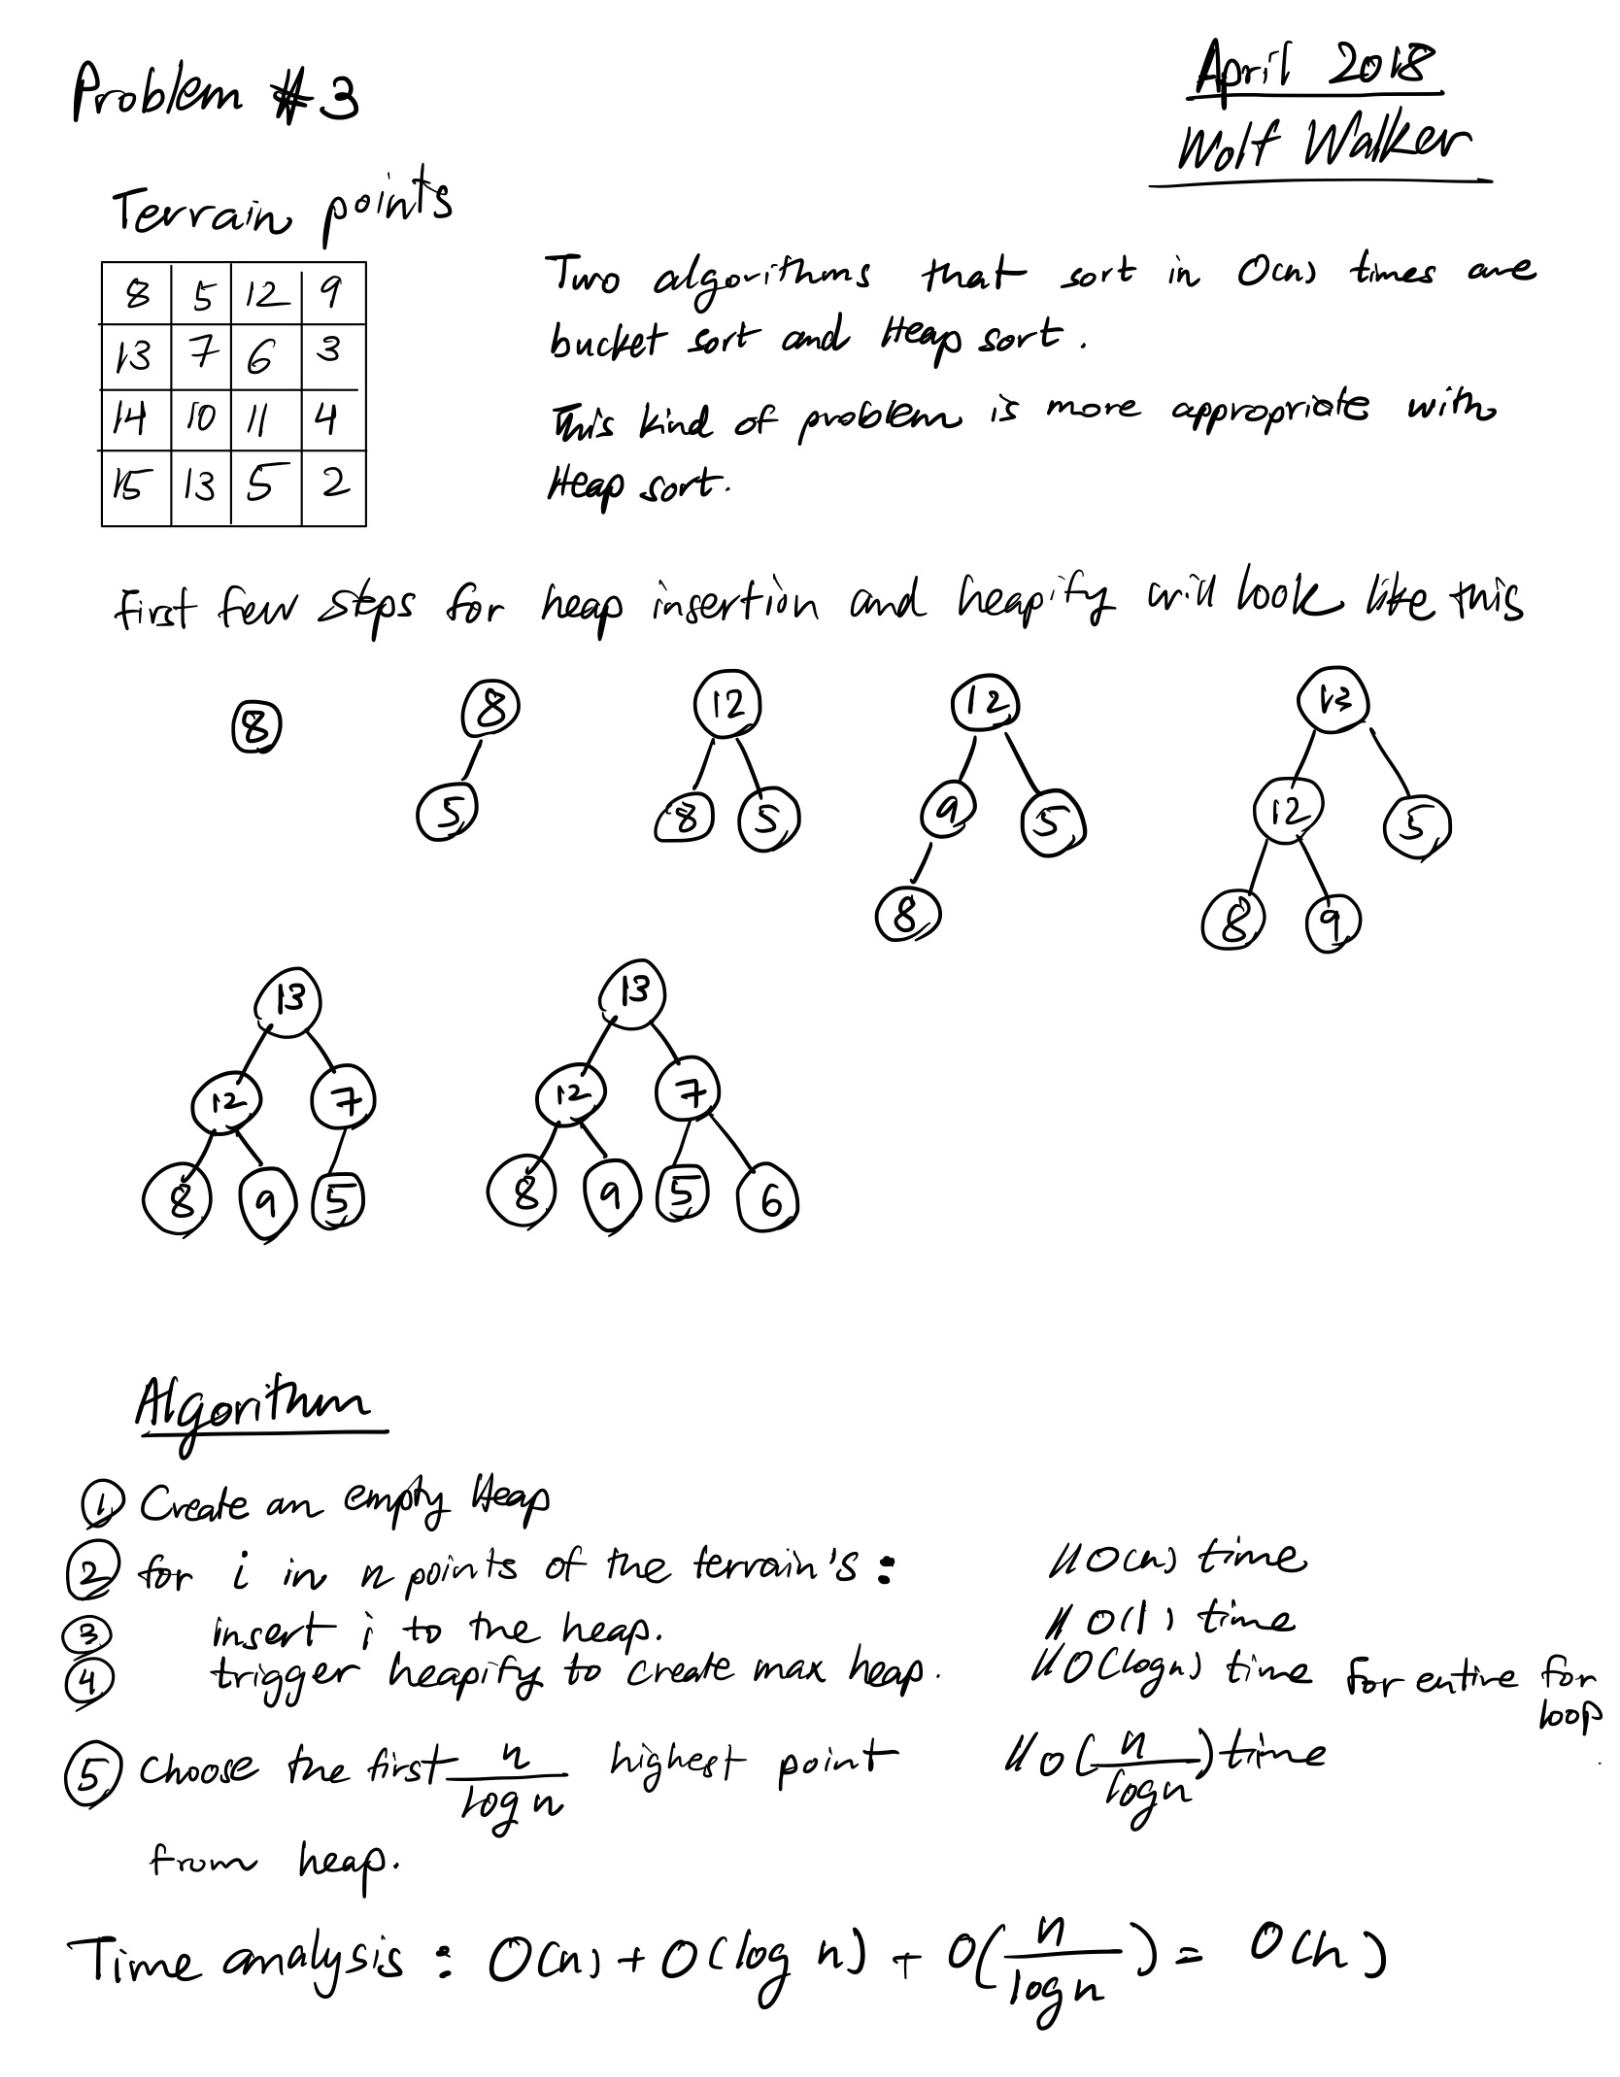 Problem #3
April 2018
Wolf Walker
Terrain points
8 5 12 9
13 7 6 3
14 10 11 4
15 13 5 2
Two algorithms that sort in O(n) times are
bucket sort and Heap sort.
This kind of problem is more appropriate with
Heap sort.
First few steps for heap insertion and heapify will look like this
8 8 12 12 13
5 8 5 9 5 12 5
8 8 9
13 13
12 7 12 7
8 9 5 8 9 5 6
Algorithm
① Create an empty Heap
② for i in n points of the terrain's : // O(n) time
③ insert i to the heap. // O(1) time
④ trigger heapify to create max heap. // O(logn) time for entire for
loop
⑤ Choose the first n/log n highest point // O(n/logn) time
from heap.
Time analysis : O(n) + O(log n) + O(n/log n) = O(n)